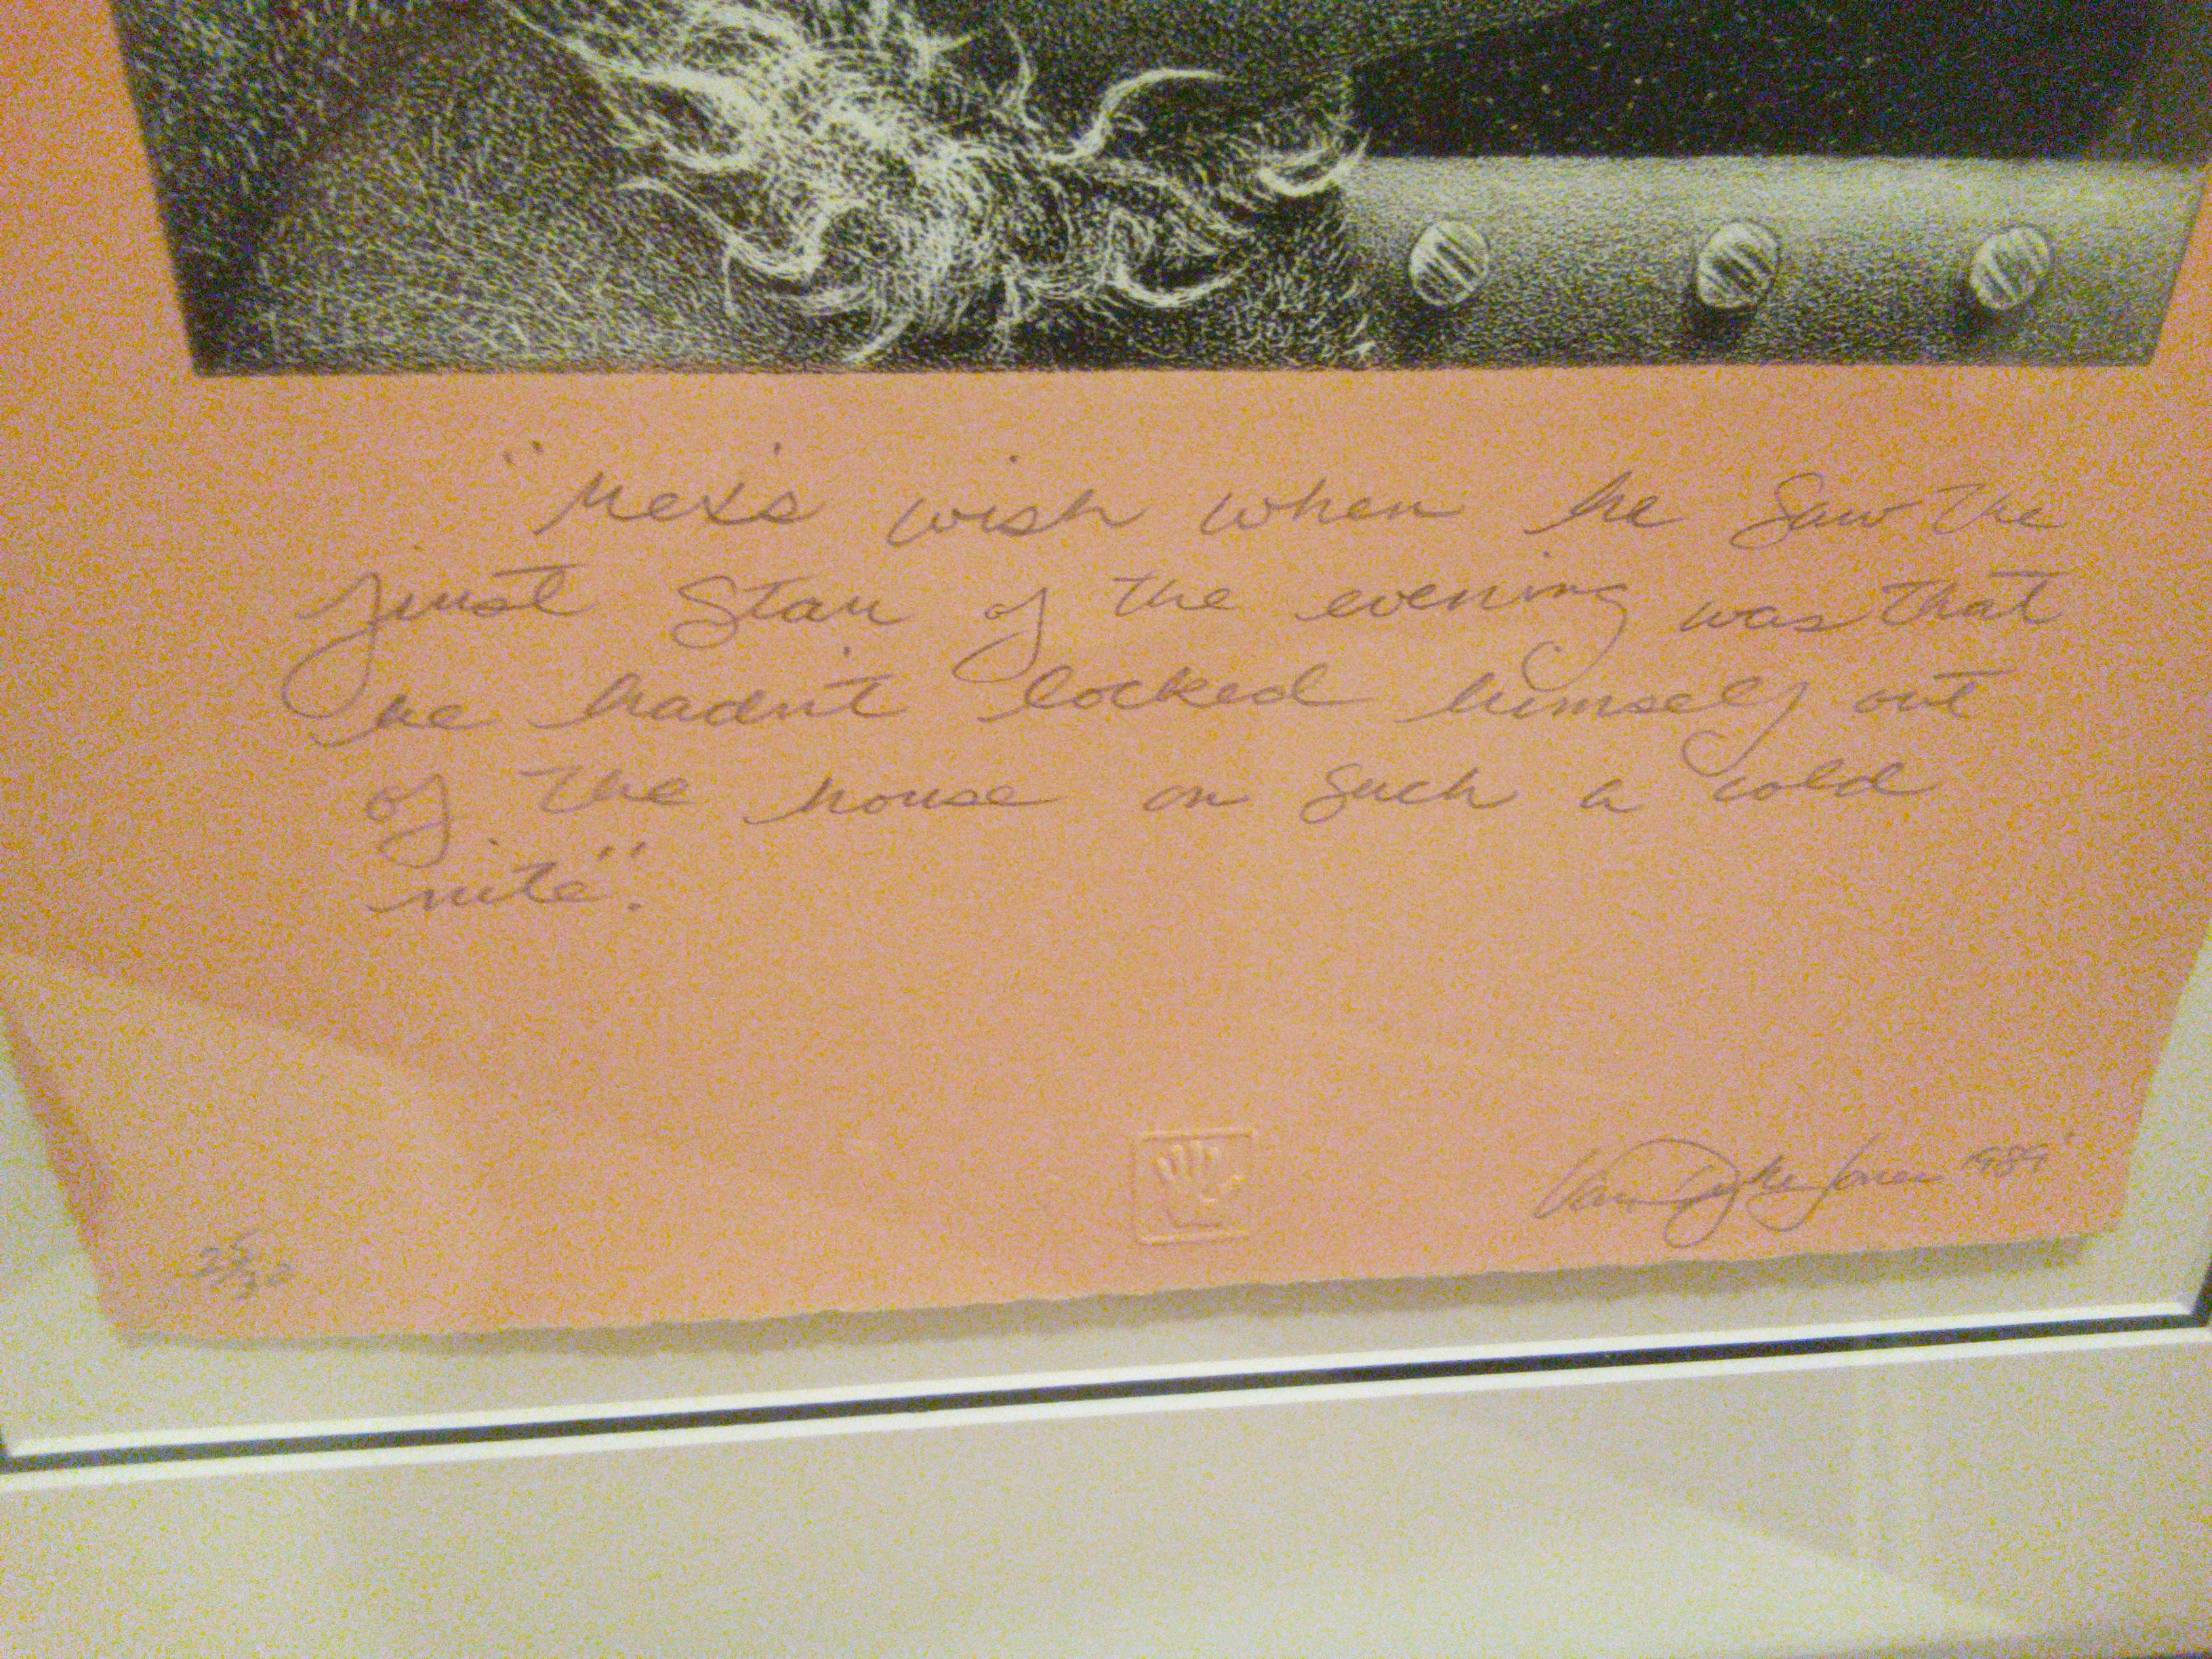 "Rex's wish when he saw the
first star of the evening was that
he hadn't locked himself out
of the house on such a cold
nite".
Van Dyke Jones 1989